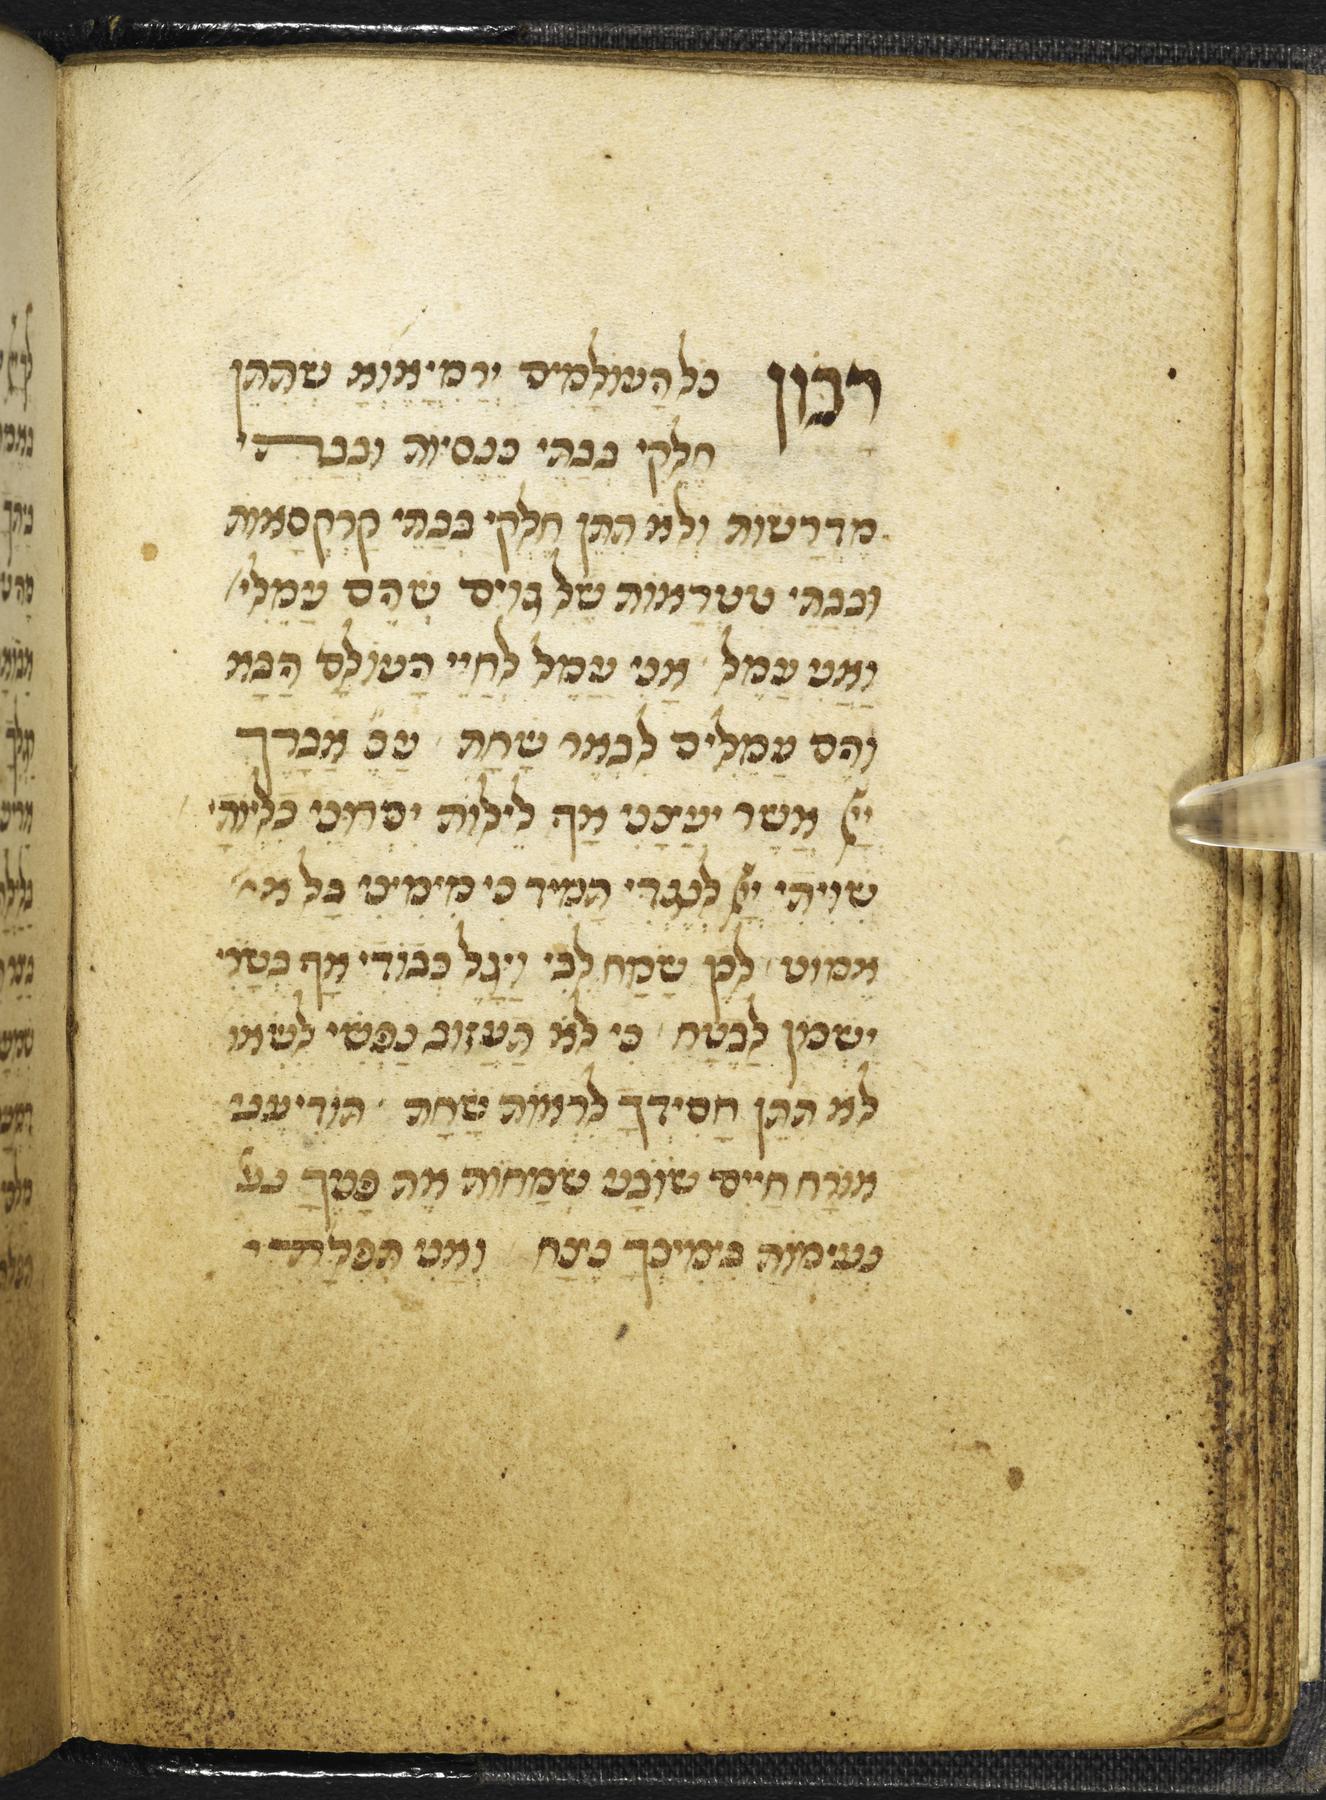 רבון כל העולמים ירמיאוא שתתן
חלקי בבתי כנסיות ובבתי
מדרשות ולא תתן חלקי בבתי קרקסאות
ובבתי טטראות של גוים שהם עמלי
ואני עמל אני עמל לחיי העולם הבא
והם עמלים לבאר שחת עכ אברך
ייי אשר יעצני אף לילות יסרוני כליותי
שויתי ייי לנגדי תמיד כי מימיני בל א
אמוט לכן שמח לבי ויגל כבודי אף בשרי
ישכון לבטח כי לא תעזוב נפשי לשאו
לא תתן חסידך לראות שחת תודיעני
אורח חיים שובע שמחות את פניך נע
נעימות בימינך נצח ואני תפלתי